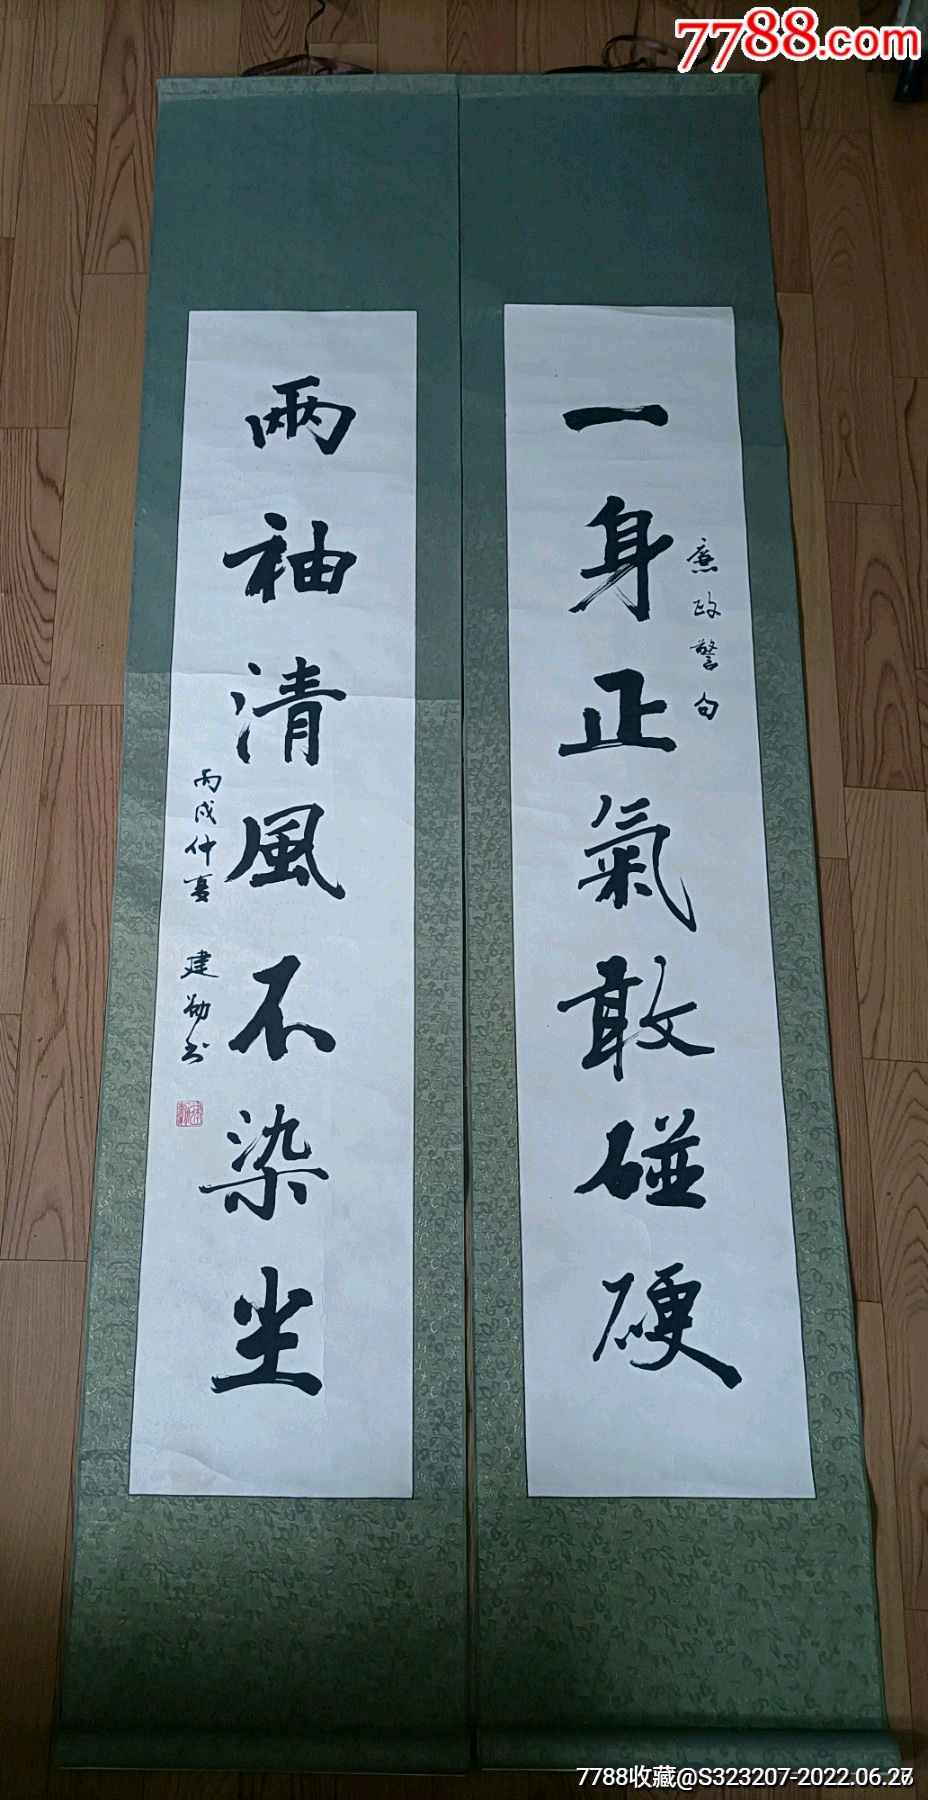 7788.com
廉政警句
一身正氣敢碰硬
兩袖清風不染尘
丙戌仲夏 建勛书
7788收藏@S323207-2022.06.26